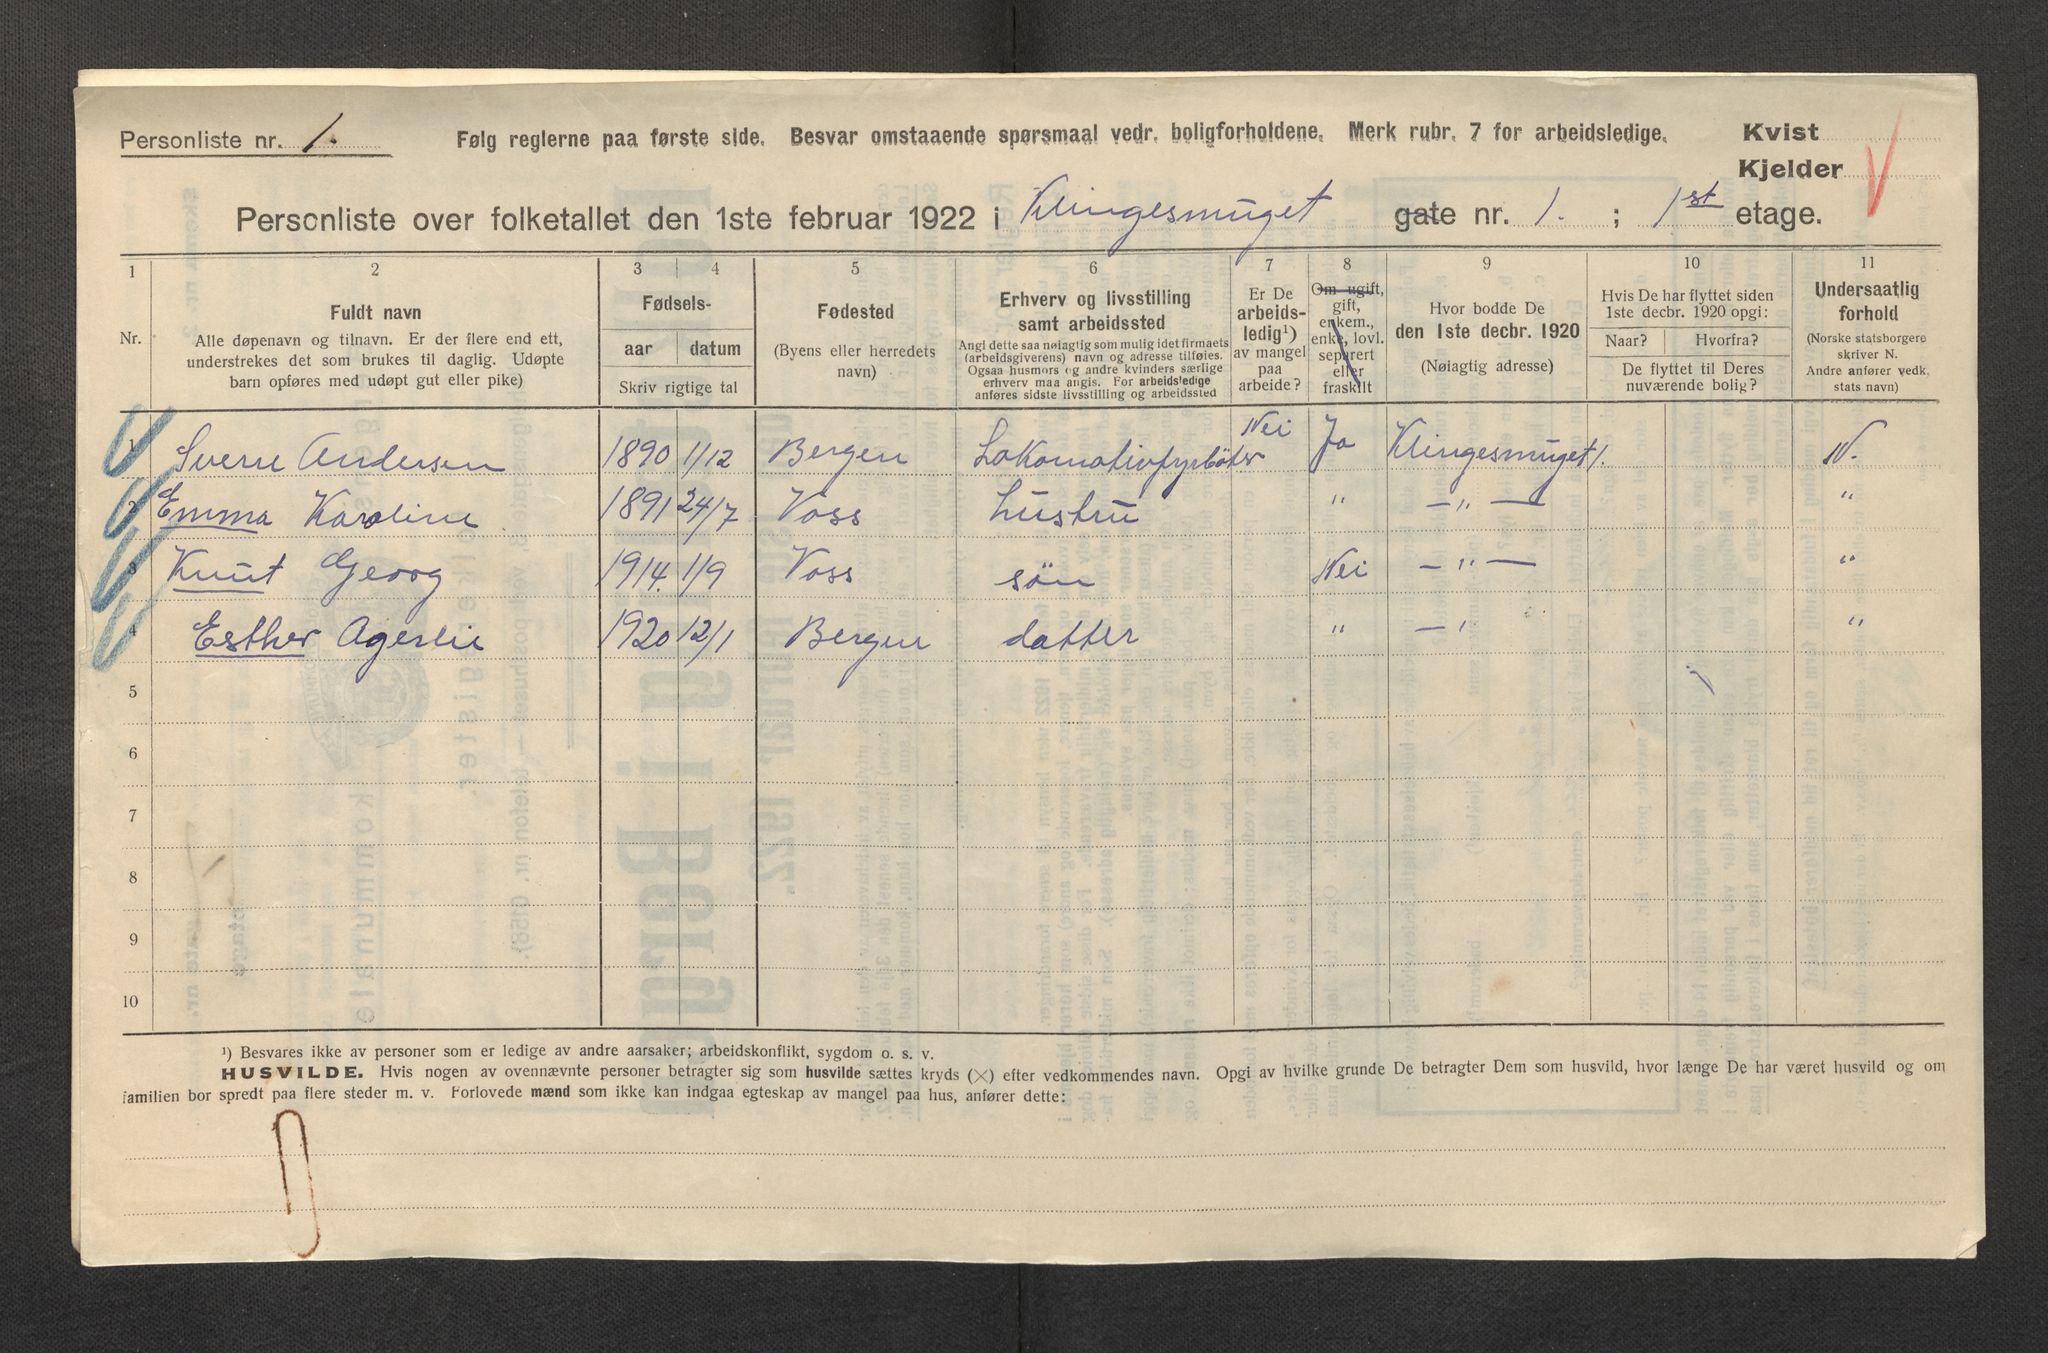 Personliste nr. 1.
Følg reglerne paa første side. Besvar omstaaende spørsmaal vedr. boligforholdene. Merk rubr. 7 for arbeidsledige.
Kvist
Kjelder
Personliste over folketallet den 1ste februar 1922 i Klingesmuget gate nr. 1. ; 1st etage.
1 2 3 4 5 6 7 8 9 10 11
Nr.
Fuldt navn
Alle døpenavn og tilnavn. Er der flere end ett,
understrekes det som brukes til daglig. Udøpte
barn opføres med udøpt gut eller pike)
Fødsels-
aar datum
Skriv rigtige tal
Fødested
(Byens eller herredets
navn)
Erhverv og livsstilling
samt arbeidssted
Angi dette saa nøiagtig som mulig idet firmaets
(arbeidsgiverens) navn og adresse tilføies.
Ogsaa husmors og andre kvinders særlige
erhverv maa angis. For arbeidsledige
anføres sidste livsstilling og arbeidssted
Er De
arbeids-
ledig¹)
av mangel
paa
arbeide?
Om ugift,
gift,
enkem.,
enke, lovl.
separert
eller
fraskilt
Hvor bodde De
den 1ste decbr. 1920
(Nøiagtig adresse)
Hvis De har flyttet siden
1ste decbr. 1920 opgi:
Naar? Hvorfra?
De flyttet til Deres
nuværende bolig?
Undersaatlig
forhold
(Norske statsborgere
skriver N.
Andre anfører vedk.
stats navn)
1 Sverre Andersen 1890 1/12 Bergen Lokomotivfyrböter Nei Ja Klingesmuget 1. N.
2 Emma Karoline 1891 24/7 Voss Hustru " — " — "
3 Knut Georg 1914. 1/9 Voss sön Nei — " — "
4 Esther Agerlie 1920 12/1 Bergen datter " — " "
5
6
7
8
9
10
¹) Besvares ikke av personer som er ledige av andre aarsaker; arbeidskonflikt, sygdom o. s. v.
HUSVILDE. Hvis nogen av ovennævnte personer betragter sig som husvilde sættes kryds (×) efter vedkommendes navn. Opgi av hvilke grunde De betragter Dem som husvild, hvor længe De har været husvild og om
familien bor spredt paa flere steder m. v. Forlovede mænd som ikke kan indgaa egteskap av mangel paa hus, anfører dette: